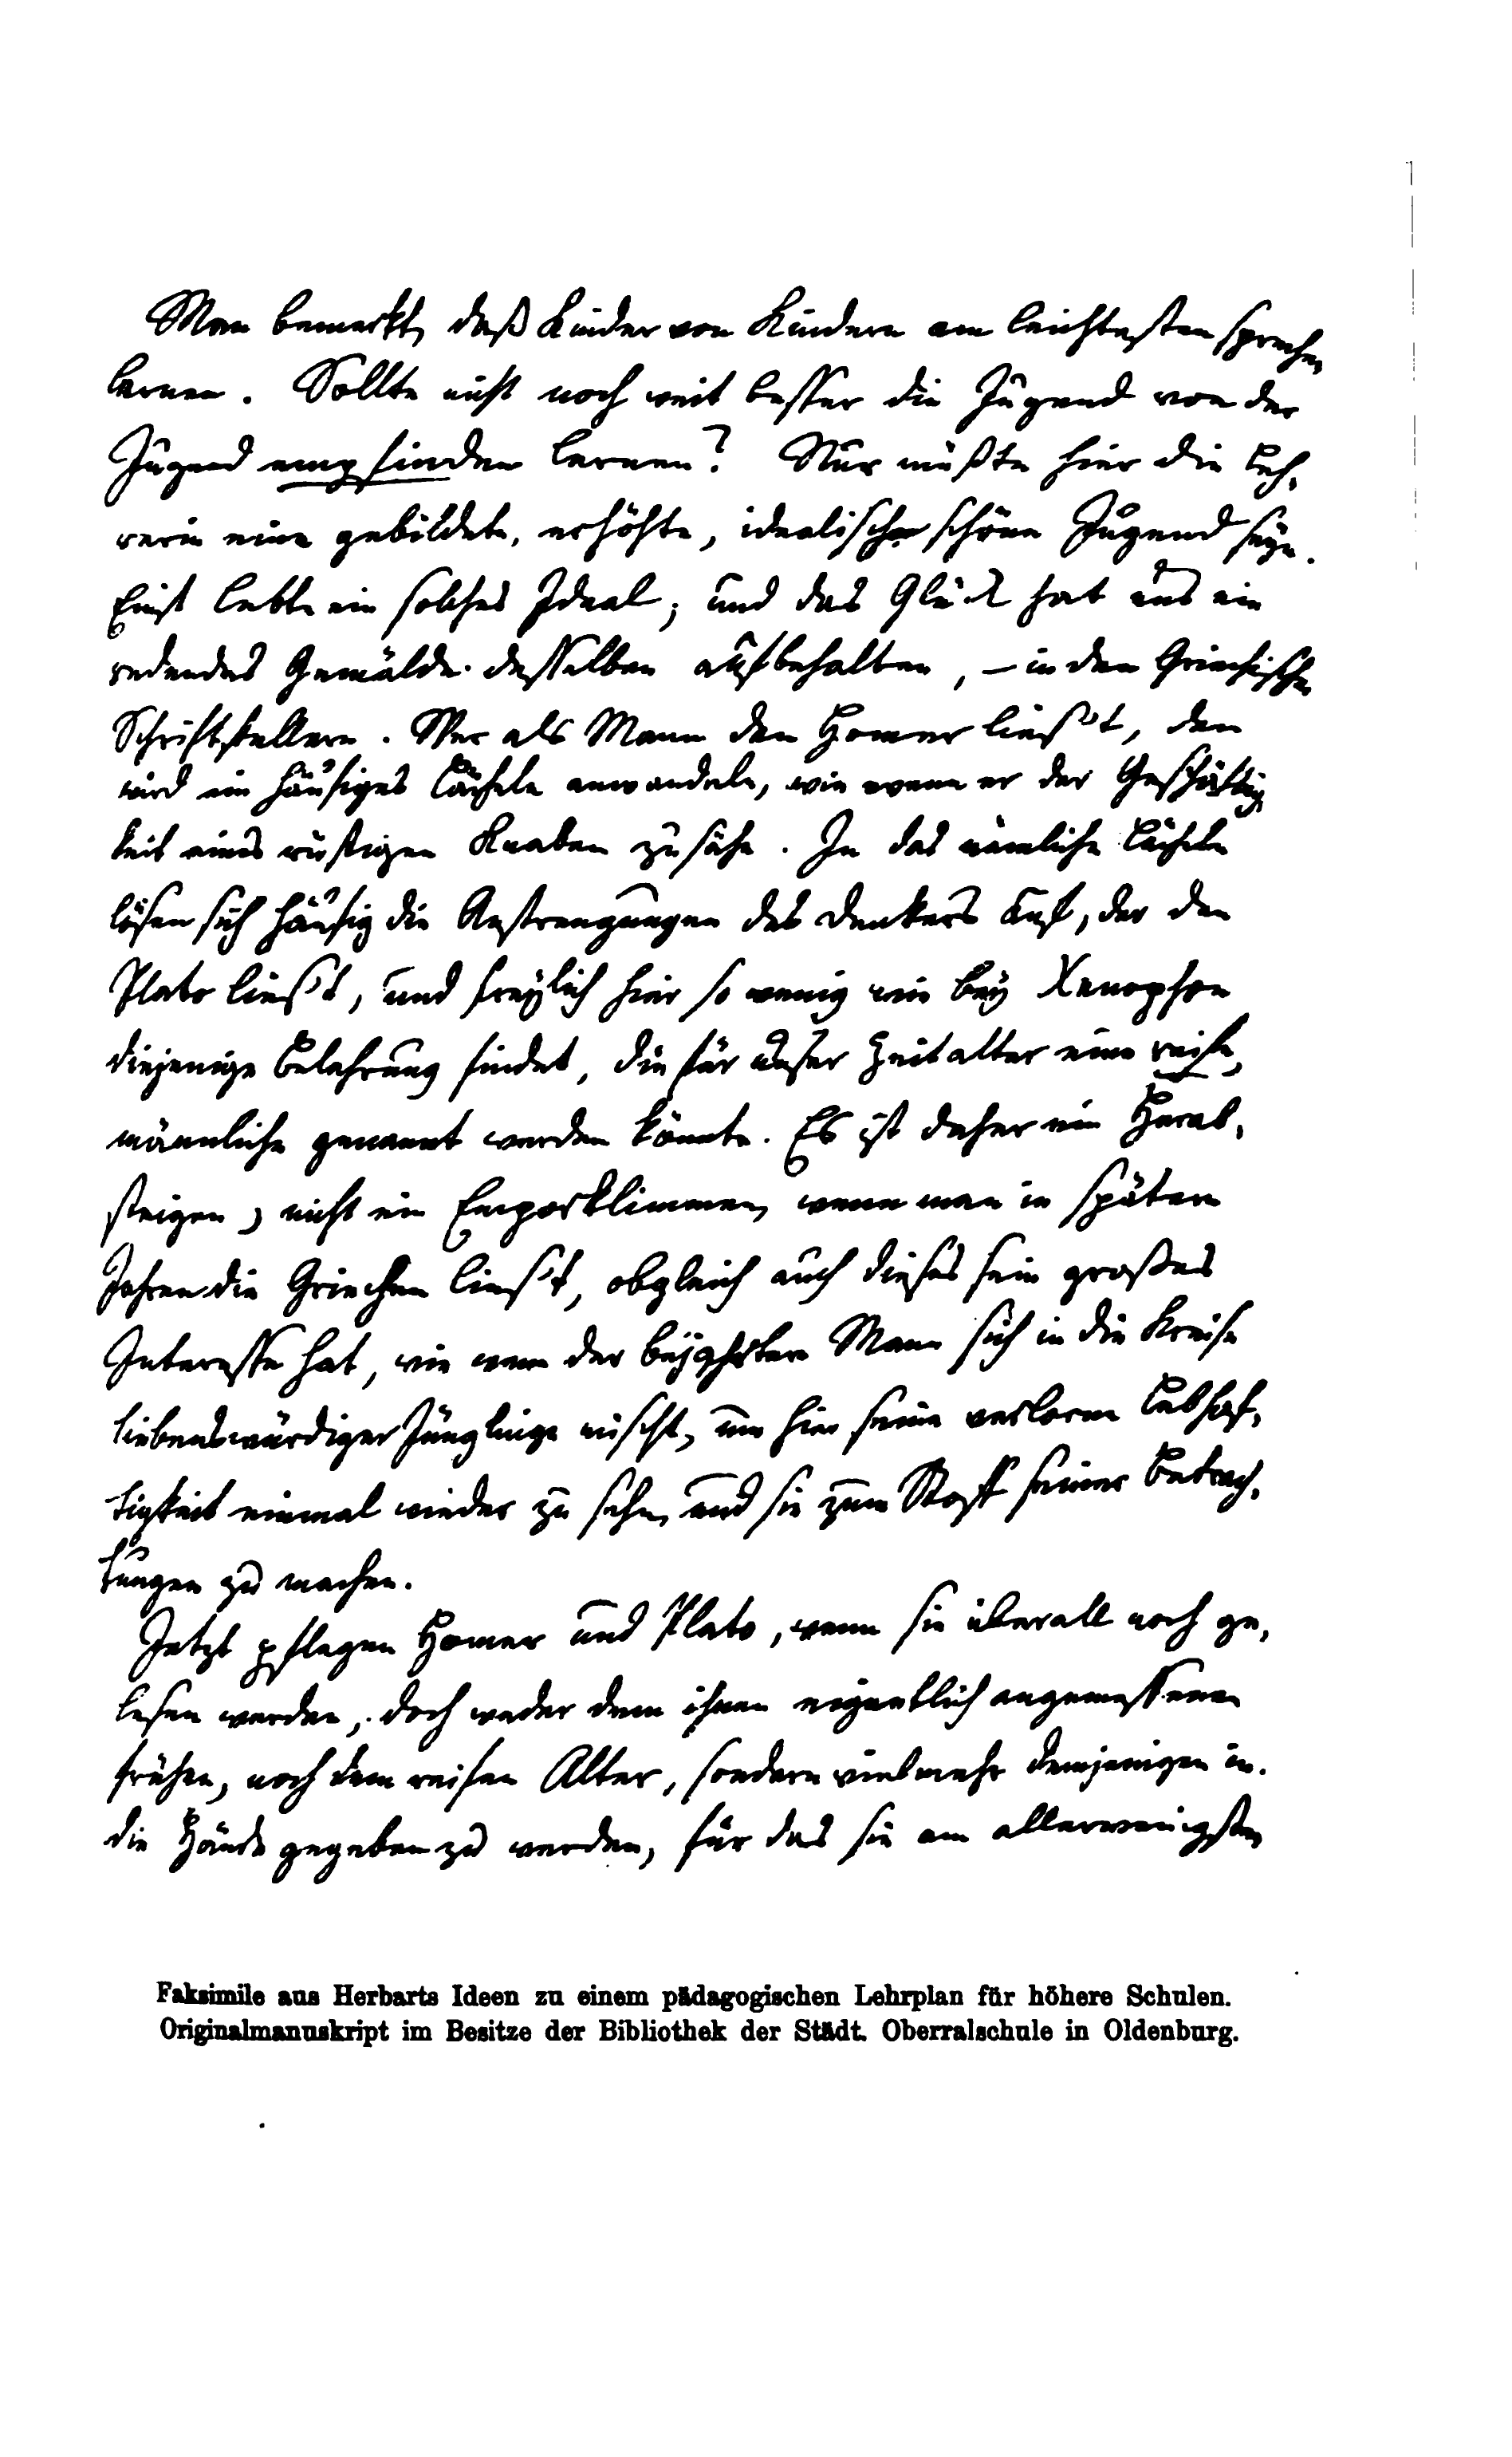 Man bemerkt, daß Kinder von Kindern am leichtesten sprechen
lernen. Sollte nicht noch weit besser die Jugend von der
Jugend empfinden lernen? Nur müßte hier die Leh,
rerin eine gebildete, erhöhte, idealische schöne Jugend seyn.
Einst lebte ein solches Ideal; und das Glück hat uns ein
redendes Gemälde desselben aufbehalten, – in den Griechischen
Schriftstellern. Wer als Mann den Homer ließ't, den
wird ein häufiges Lächeln anwandeln, wie wenn er der Geschäftig,
keit eines rüstigen Knaben zusähe. In das nämliche Lächeln
lösen sich häufig die Anstrengungen des Denkers auf, der den
Plato ließ't, und freylich hier so wenig wie bey Xenophon
diejenige Belehrung findet, die für unser Zeitalter eine reife,
männliche genannt werden könnte. Es ist daher ein Herab,
steigen, nicht ein Emporklimmen, wenn man in spätern
Jahren die Griechen ließ't, obgleich auch dieses sein großes
Interesse hat, wie wenn der bejahrtere Mann sich in die Kreise
liebenswürdiger Jünglinge mischt, um hier seine verlorne Lebhaf,
tigkeit einmal wieder zu sehn, und sie zum Stoff seiner Betrach,
tungen zu machen.
Jetzt pflegen Homer und Plato, wenn sie überall noch ge,
lesen werden, doch weder dem ihnen eigentlich angemessenen
frühen, noch dem reifen Alter, sondern vielmehr demjenigen in
die Hände gegeben zu werden, für das sie am allerwenigsten
Faksimile aus Herbarts Ideen zu einem pädagogischen Lehrplan für höhere Schulen.
Originalmanuskript im Besitze der Bibliothek der Städt. Oberralschule in Oldenburg.